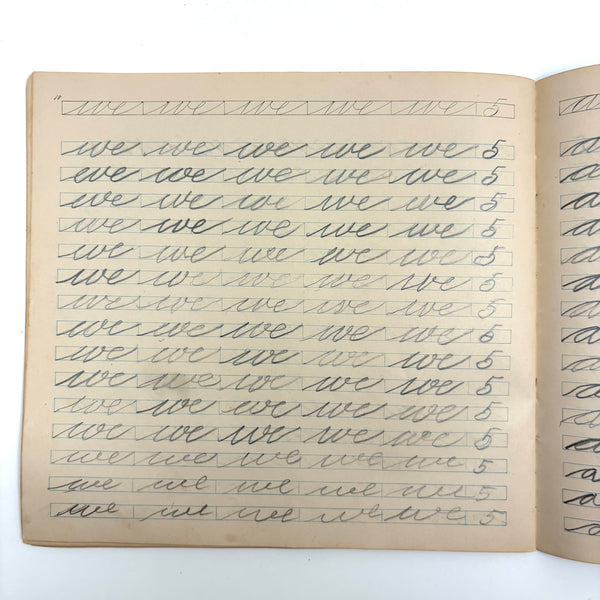 we we we we we 5
we we we we we 5
we we we we we 5
we we we we we 5
we we we we we 5
we we we we we 5
we we we we we 5
we we we we we 5
we we we we we 5
we we we we we 5
we we we we we 5
we we we we we 5
we we we we we 5
we we we we we 5
we we we we we 5
we we we we we 5